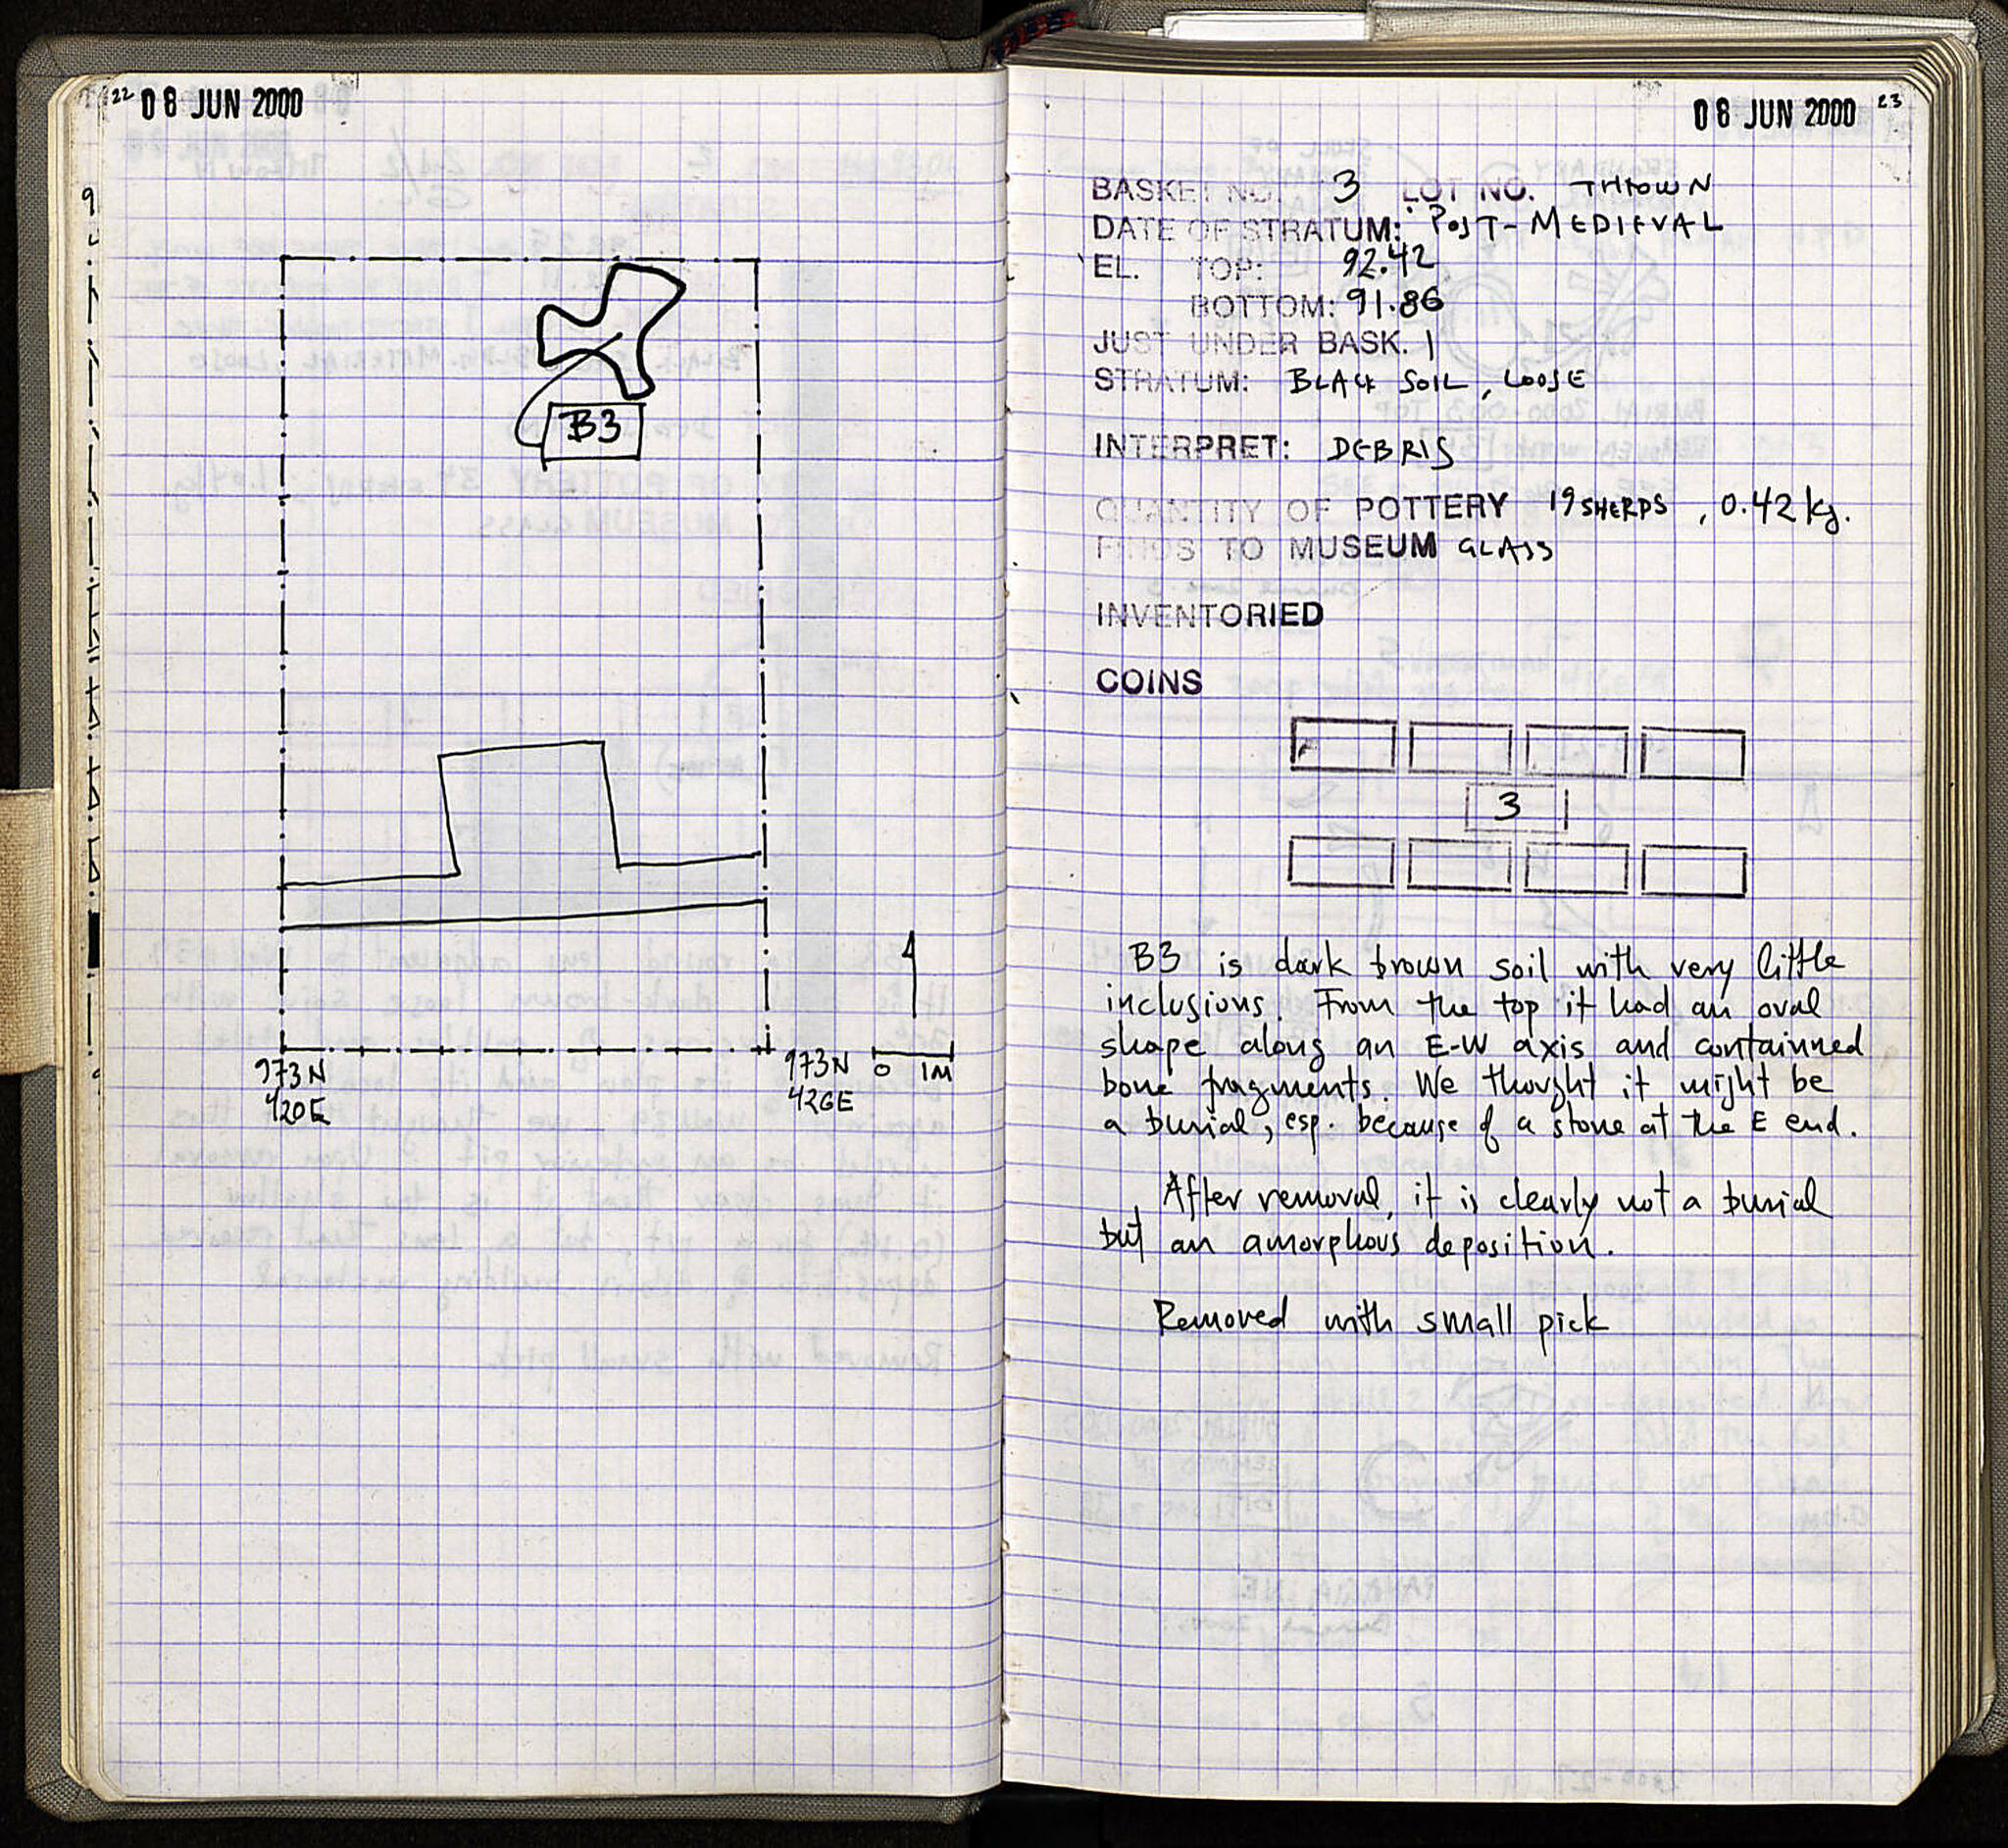 22 08 JUN 2000
B3
973N
420E
973N
426E
0 1M
08 JUN 2000 23
BASKET NO. 3 LOT NO. THROWN
DATE OF STRATUM: POST-MEDIEVAL
EL. TOP: 92.42
BOTTOM: 91.86
JUST UNDER BASK. 1
STRATUM: BLACK SOIL, LOOSE
INTERPRET: DEBRIS
QUANTITY OF POTTERY 19 SHERDS, 0.42 kg.
FINDS TO MUSEUM GLASS
INVENTORIED
COINS
3
B3 is dark brown soil with very little
inclusions. From the top it had an oval
shape along an E-W axis and containned
bone fragments. We thought it might be
a burial, esp. because of a stone at the E end.
After removal, it is clearly not a burial
but an amorphous deposition.
Removed with small pick